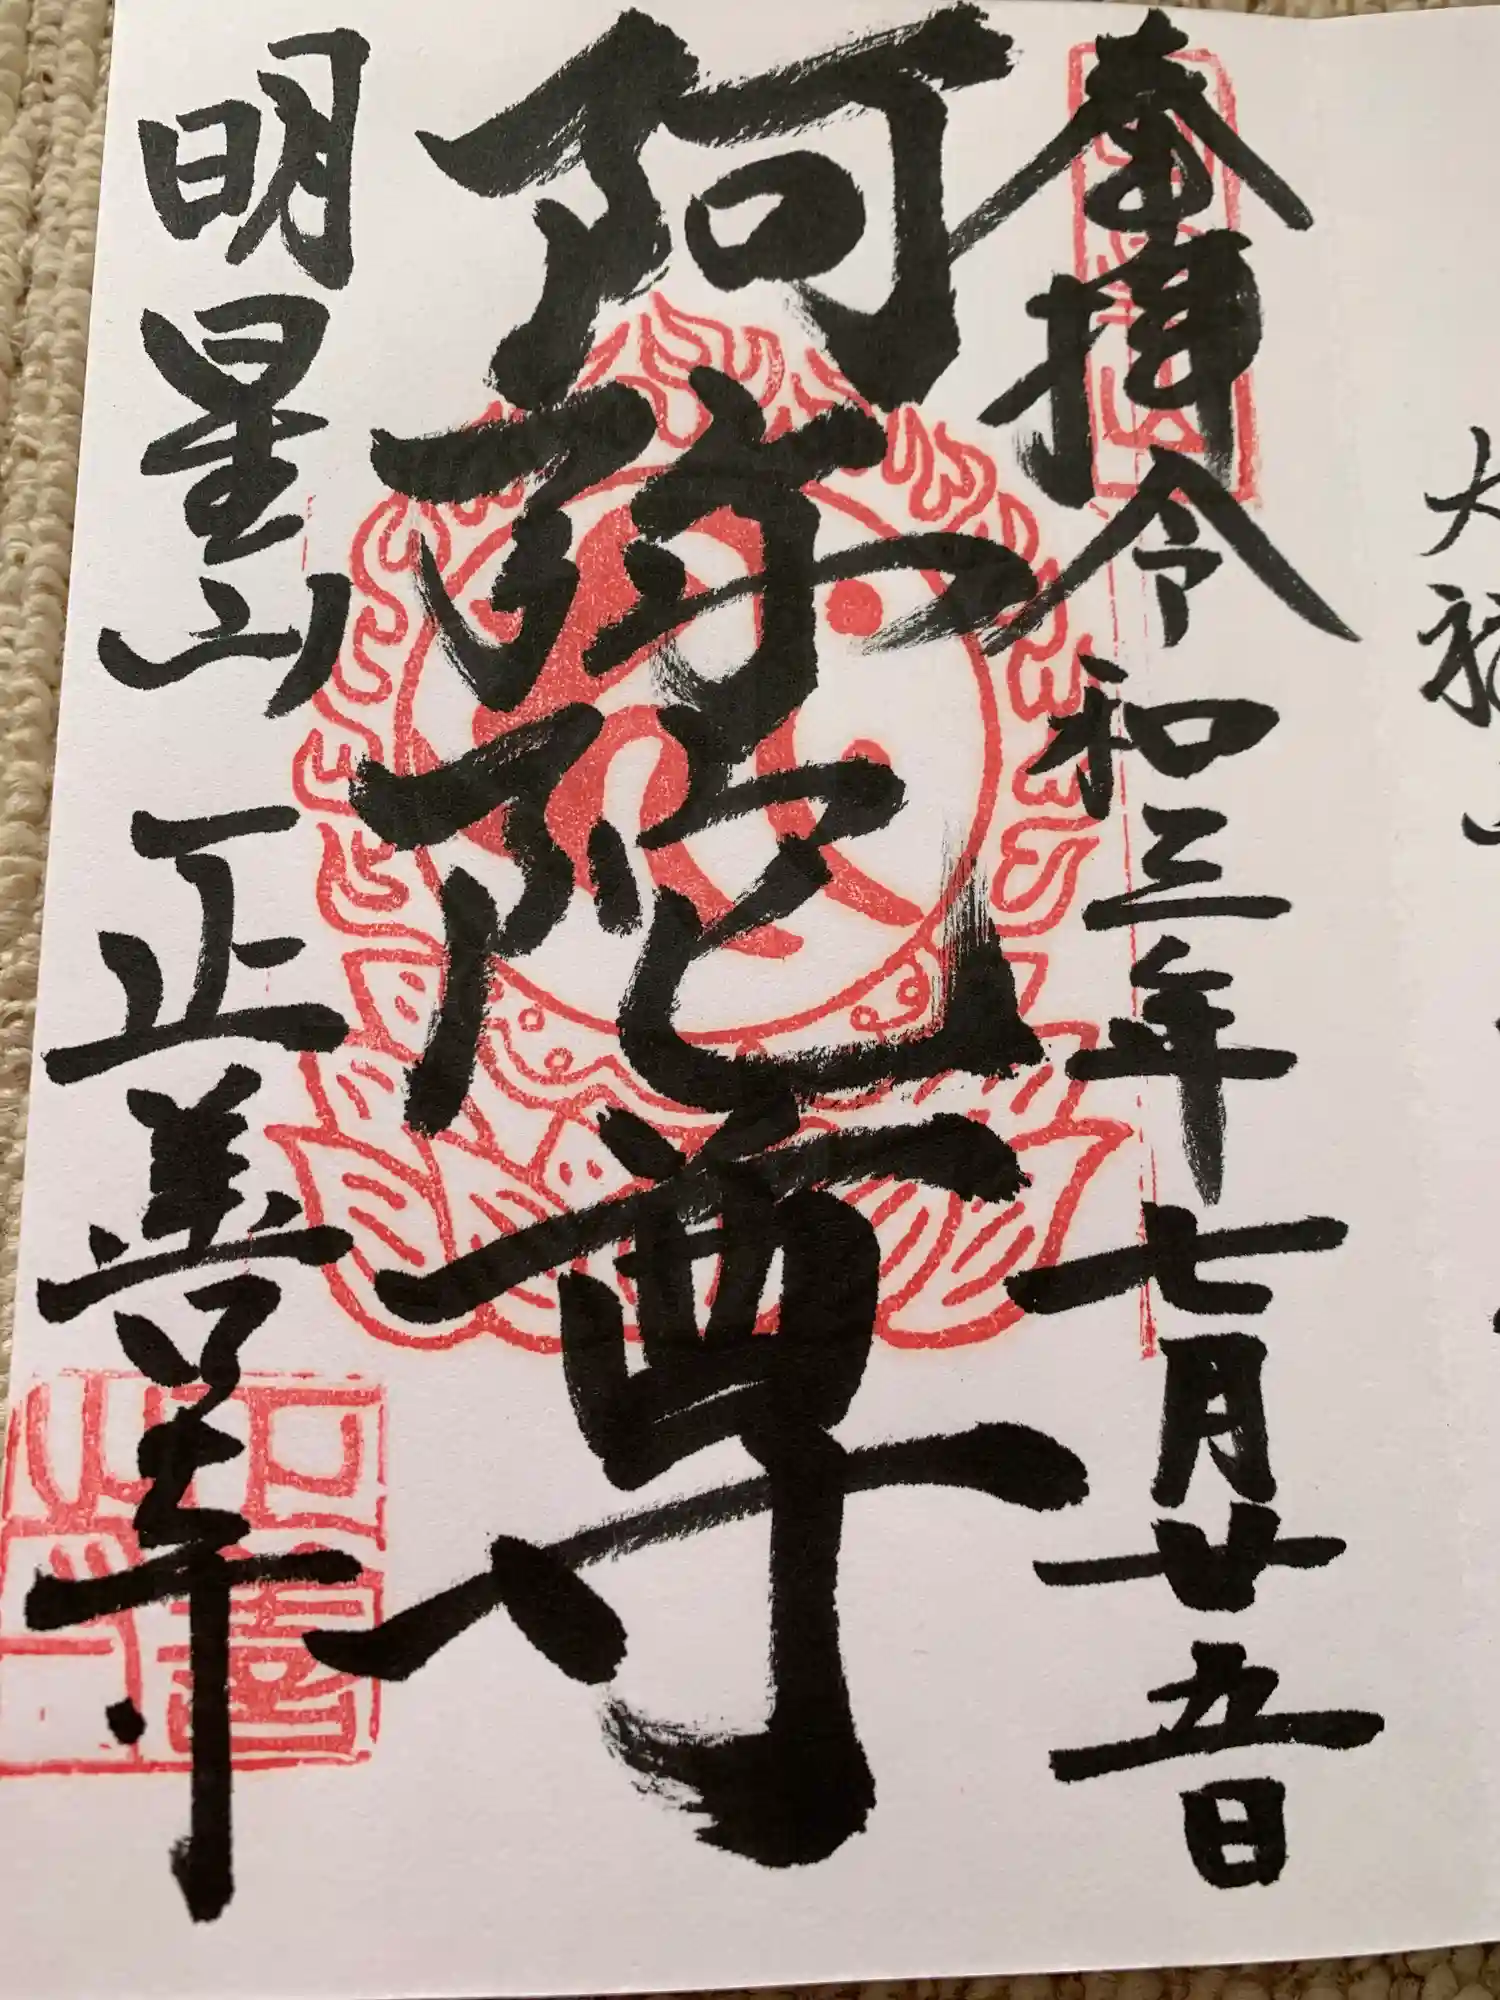 奉拝 令和三年七月廿五日
阿弥陀尊
明星山 正善寺
大福